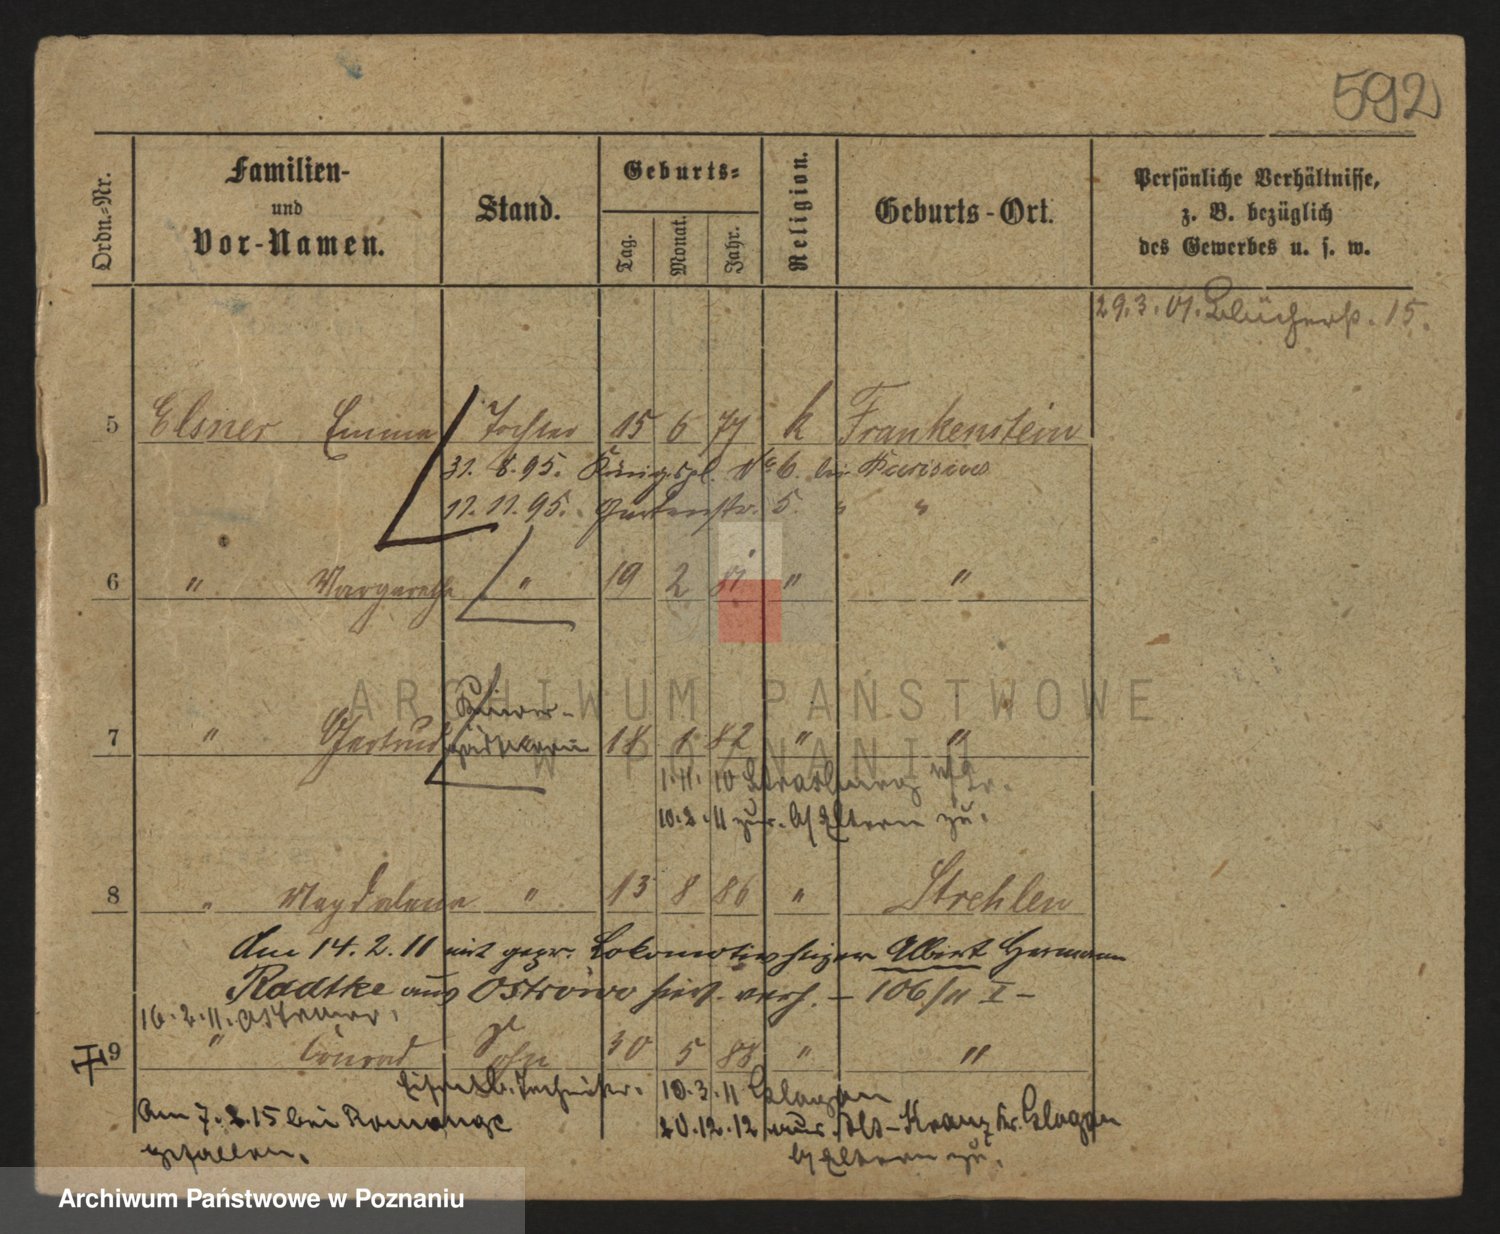 592
Ordn.-Nr.
Familien-
und
Vor-Namen.
Stand.
Geburts-
Tag.
Monat.
Jahr.
Religion.
Geburts-Ort.
Persönliche Verhältnisse,
z. B. bezüglich
des Gewerbes u. s. w.
29.3.01. Blücherstr. 15.
5 Elsner Emma Tochter 15 6 77 k Frankenstein
31. 8. 95. Königspl. No 6. bei
11. 11. 95. Gartenstr. 5. " "
6 " Margarethe " 19 2 81 " "
7 " Gertrud 18 1 82 " "
1.11.10 Strasburg W/Pr.
10.2.11 zur. b/Eltern zu.
8 " Magdalena " 13 8 86 " Strehlen
Am 14.2.11 mit gepr. Lokomotivheizer Albert Hermann
Radtke aus Ostrowo hier verh. - 106/11 I -
16.2.11. Ostrowo.
9 " Conrad Sohn 30 5 88 " "
Eisenb. Techniker. 10.3.11 Glogau
Am 7.2.15 bei Romange 20.12.12 aus Alt-Kranz Kr. Glogau
gefallen. b/Eltern zu.
ARCHIWUM PAŃSTWOWE
W POZNANIU
Archiwum Państwowe w Poznaniu